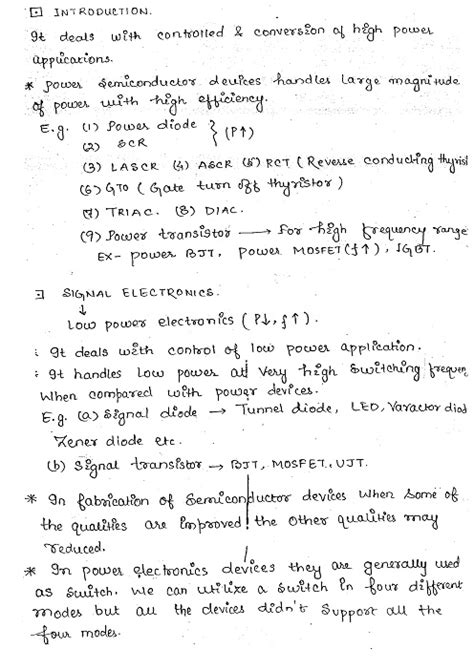 ⊡ INTRODUCTION.
It deals with controlled & conversion of high power
applications.
* Power semiconductor devices handles large magnitude
of power with high efficiency.
E.g. (1) Power diode } (P↑)
(2) SCR
(3) LASCR (4) ASCR (5) RCT (Reverse conducting thyris
(6) GTO (Gate turn off thyristor)
(7) TRIAC. (8) DIAC.
(9) Power transistor → for high frequency range
EX- power BJT, power MOSFET (f↑), IGBT.
SIGNAL ELECTRONICS.
↓
Low power electronics (P↓, f↑).
: It deals with control of low power application.
: It handles Low power at very high switching frequen
when compared with power devices.
E.g. (a) signal diode → Tunnel diode, LED, Varactor diod
Zener diode etc.
(b) signal transistor → BJT, MOSFET, UJT.
* In fabrication of semiconductor devices when some of
the qualities are improved the other qualities may
reduced.
* In power electronics devices they are generally used
as switch. We can utilize a switch in four different
modes but all the devices didn't support all the
four modes.